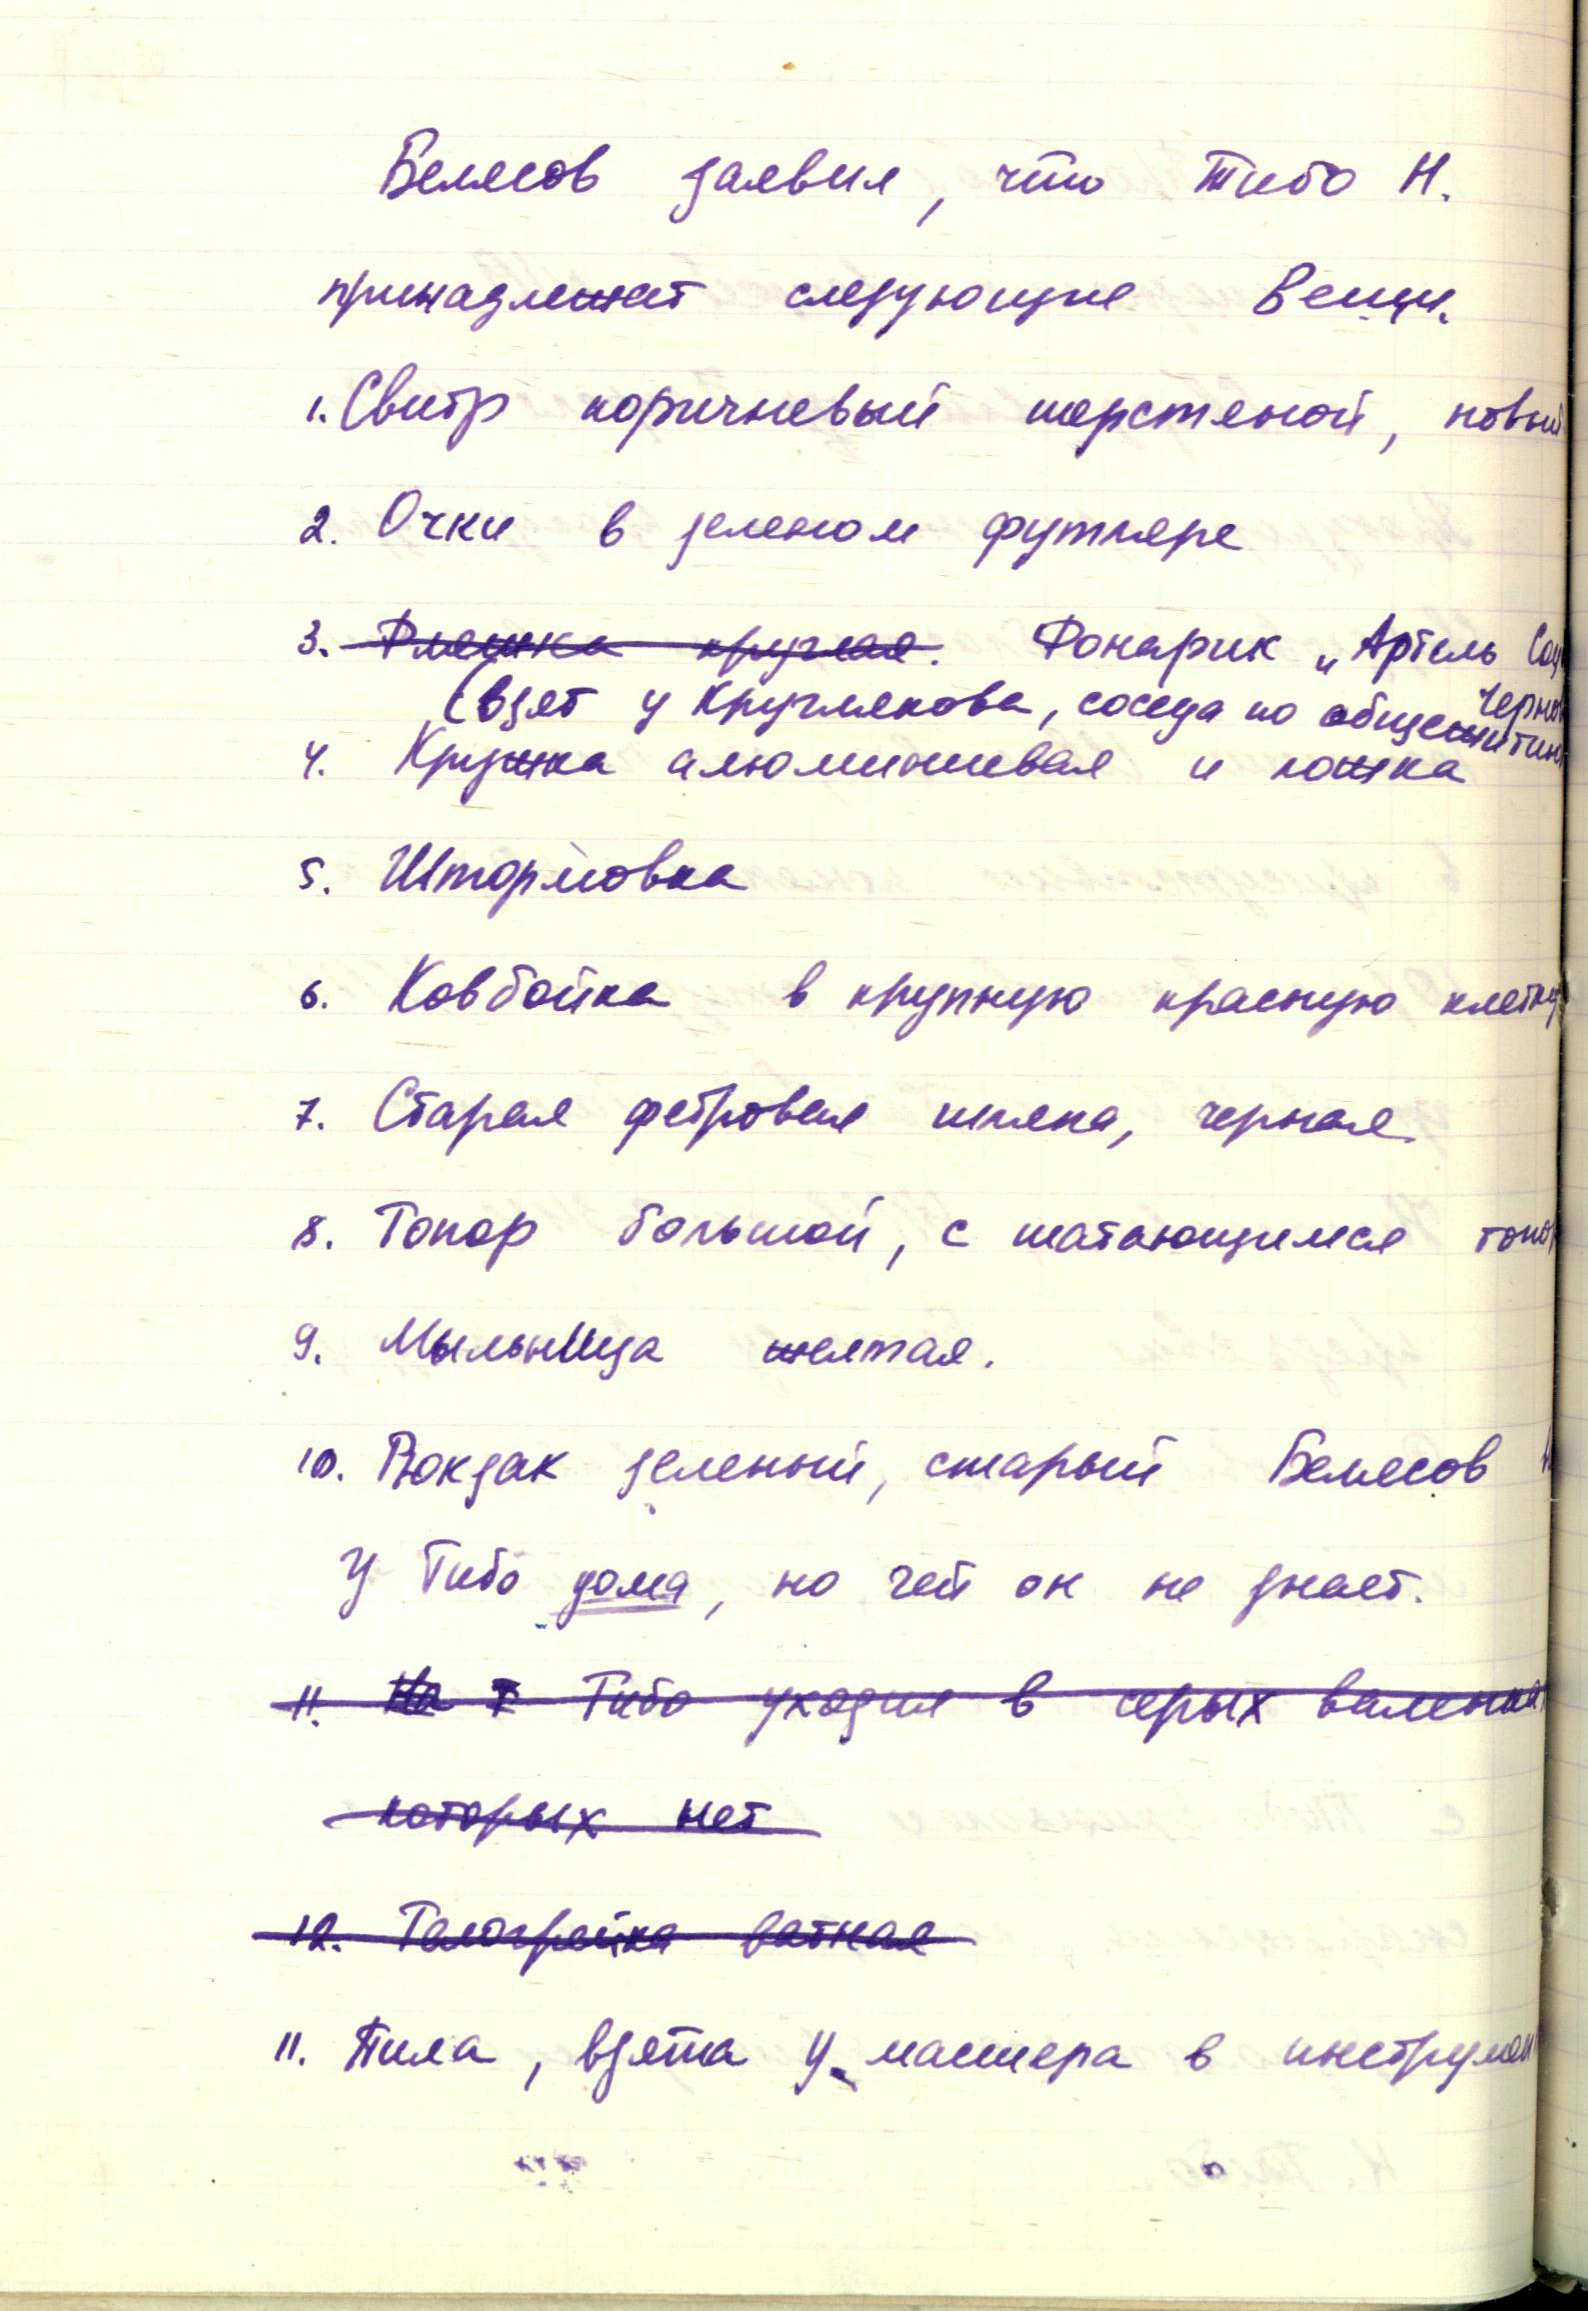 Белясов заявил, что Тибо Н.
принадлежат следующие вещи.
1. Свитр коричневый шерстяной, новый
2. Очки в зеленом футляре
3. Фляжка круглая. Фонарик „Артель
черно
(взят у Круглякова, соседа по общежитию
4. Кружка алюминиевая и ложка
5. Штормовка
6. Ковбойка в крупную красную клетку
7. Старая фетровая шляпа, черная
8. Топор большой, с шатающимся топор
9. Мыльница желтая.
10. Рюкзак зеленый, старый Белясов
у Тибо дома, но чей он не знает.
11. На Т Тибо уходил в серых валенках
которых нет
12. Телогрейка ватная
11. Пила, взята у мастера в инструмен